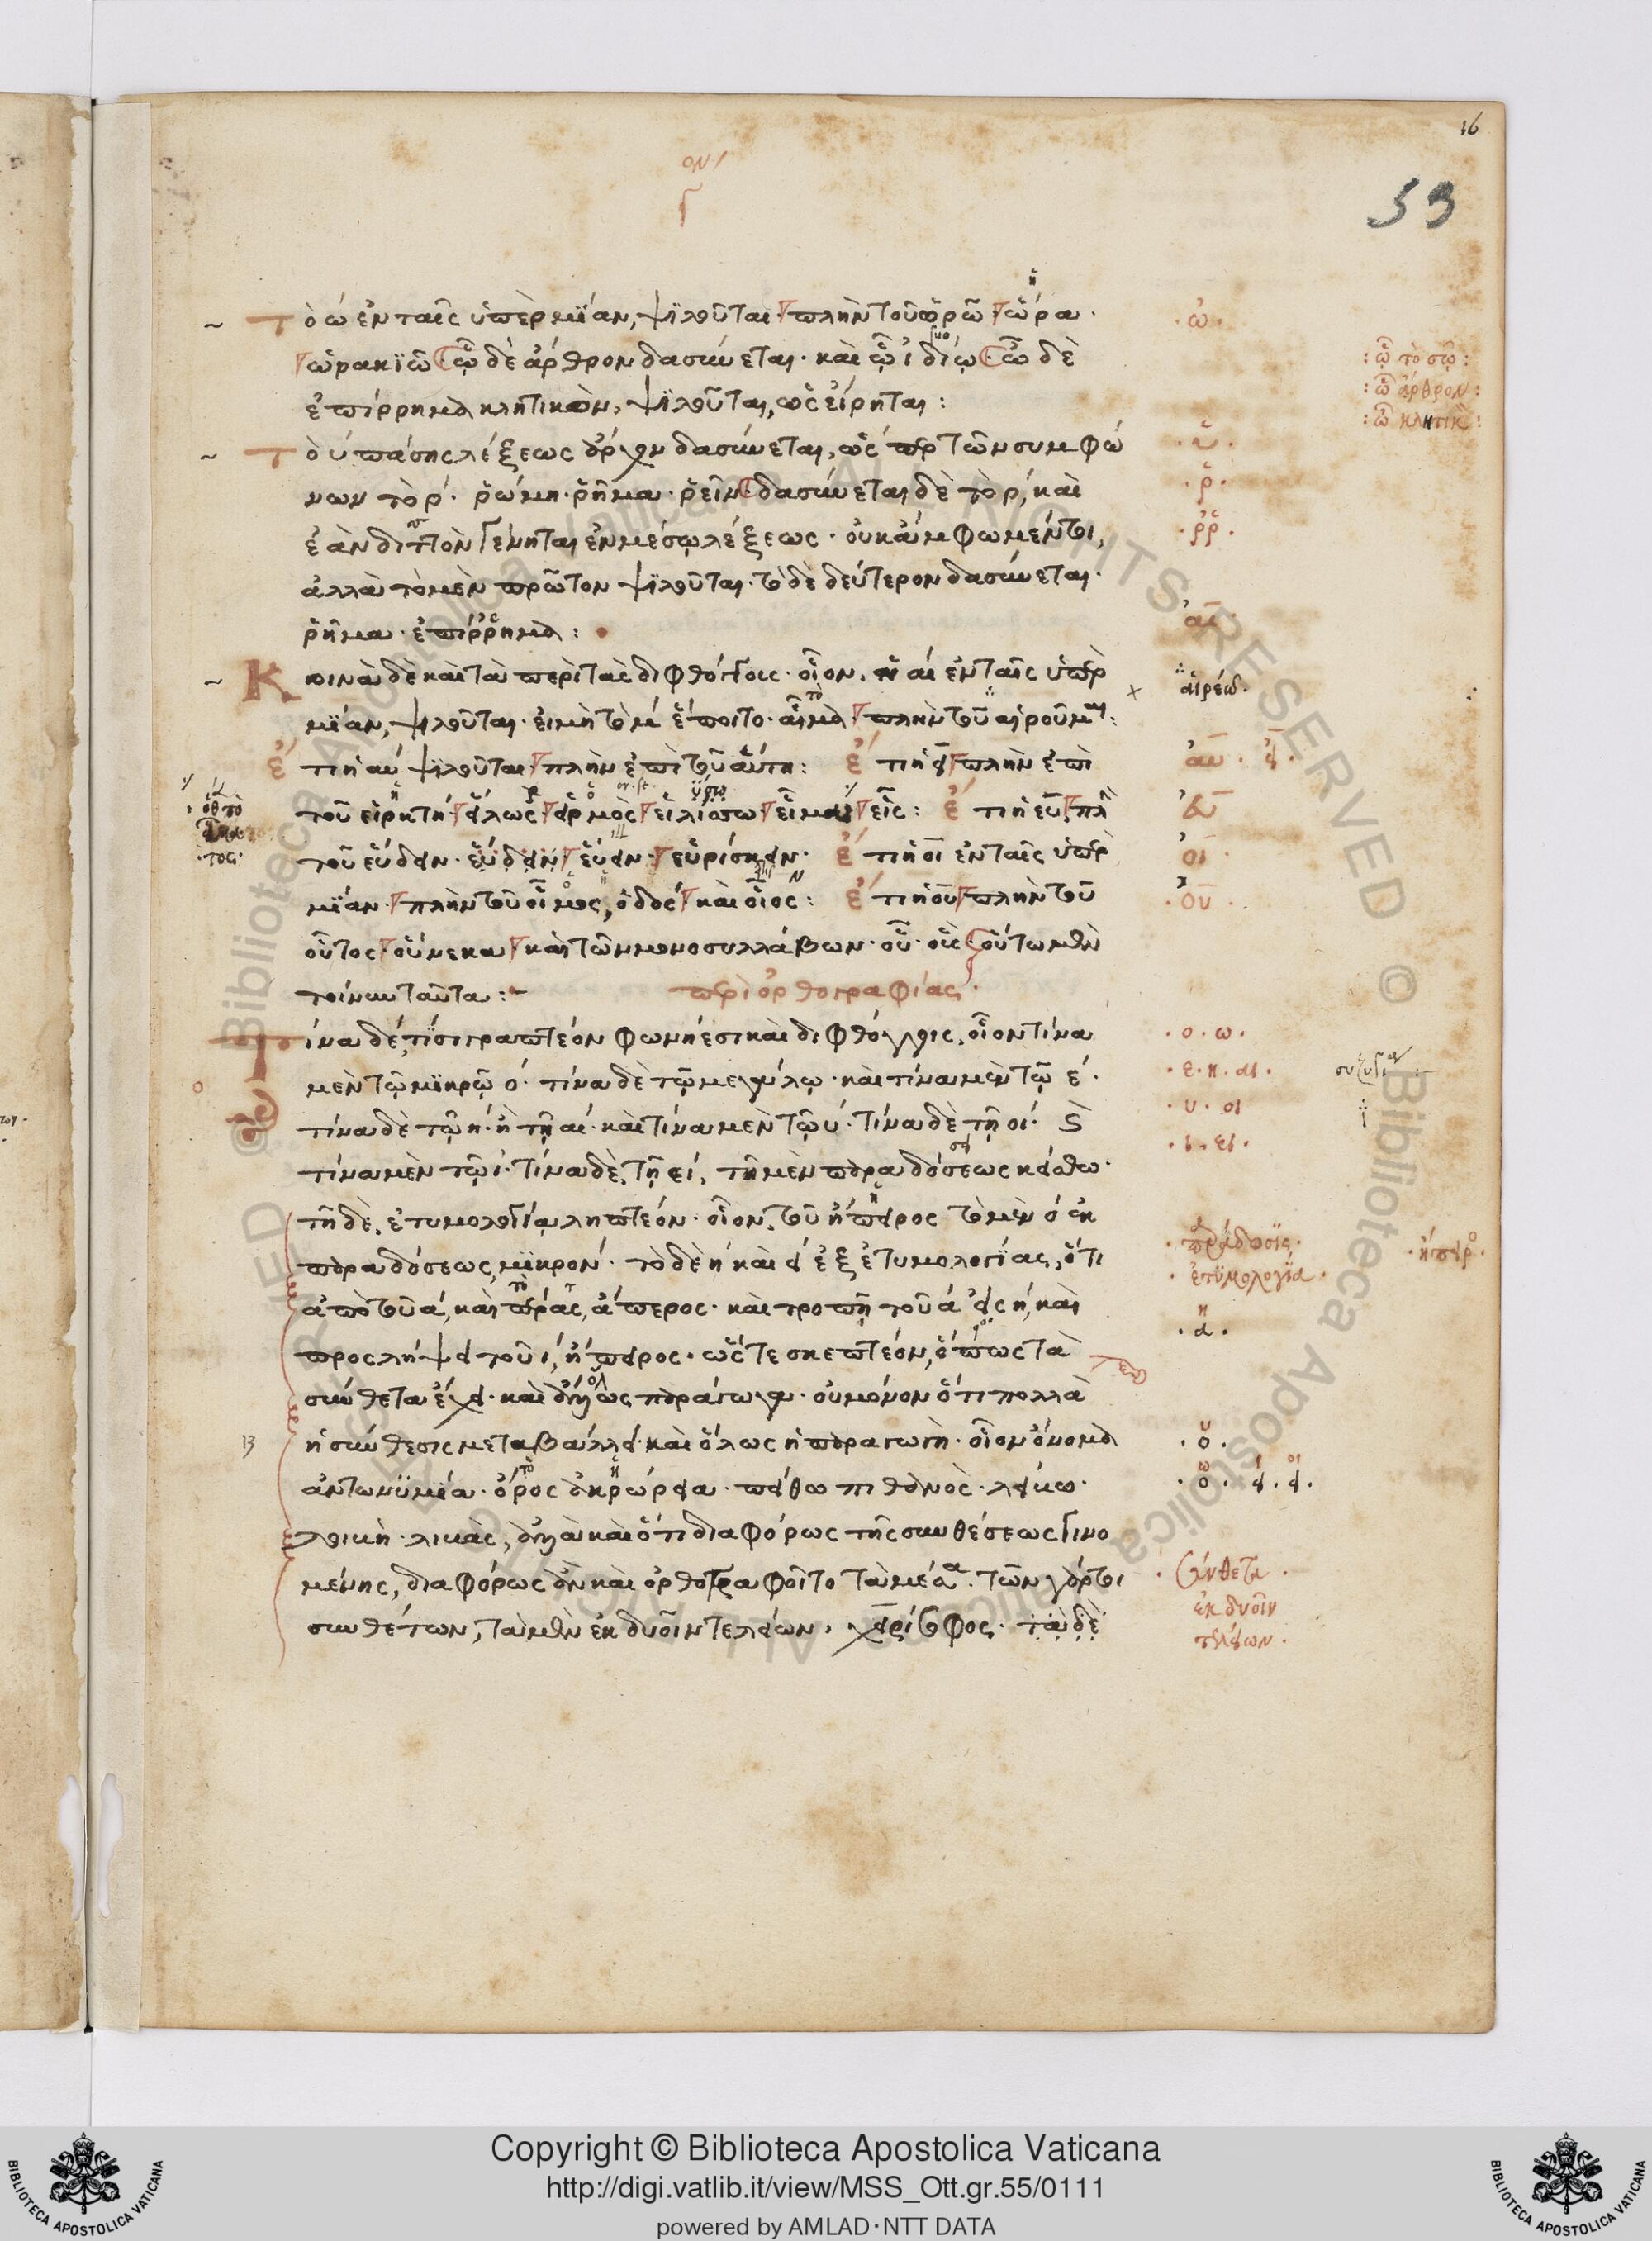 16
53
Τὸ ω ἐν ταῖς ὑπὲρ μίαν, ψιλοῦται πλὴν τοῦ ὁρῶ ὥρα·
ὡρακιῶ ᾧ δὲ ἄρθρον δασύνεται· καὶ ᾧ ἰδίῳ ὦ δὲ
ἐπίρρημα κλητικὸν, ψιλοῦται, ὡς εἴρηται:
Τὸ υ πάσης λέξεως ἄρχον δασύνεται, ὡς τῶν συμφώ
νων τὸ ρ· ῥώμη· ῥῆμα· ῥεῖν δασύνεται δὲ τὸ ρ, καὶ
ἐὰν διττὸν γένηται ἐν μέσῳ λέξεως· οὐκ ἄμφω μέντοι,
ἀλλὰ τὸ μὲν πρῶτον ψιλοῦται· τὸ δὲ δεύτερον δασύνεται·
ῥῆμα· ἐπίῤῥημα:
Κοινὰ δὲ καὶ τὰ περὶ τὰς διφθόγγους· οἷον, ἡ αι ἐν ταῖς ὑπὲρ
μίαν, ψιλοῦται· εἰ μὴ τὸ μ ἕποιτο· αἷμα πλὴν τοῦ αἱροῦμαι:
ἔτι ἡ αυ ψιλοῦται πλὴν ἐπὶ τοῦ αὕτη: ἔτι ἡ ει πλὴν ἐπὶ
τοῦ εἱρκτή εἵλως εἱρμὸς εἱλίσσω εἷμαι εἷς: ἔτι ἡ ευ πλὴν
τοῦ εὕδειν· εὕδειν εὕειν· εὑρίσκειν· ἔτι ἡ οι ἐν ταῖς ὑπὲρ
μίαν· πλὴν τοῦ οἷμος, ὁδός καὶ οἷος: ἔτι ἡ ου πλὴν τοῦ
οὗτος οὕνεκα καὶ τῶν μονοσυλλάβων· οὗ· οἷς οὕτω μὲν
τοίνυν ταῦτα:
περὶ ὀρθογραφίας·
Τίνα δὲ, τίσι γραπτέον φωνήεσι καὶ διφθόγγοις, οἷον τίνα
μὲν τῷ μικρῷ ο· τίνα δὲ τῷ μεγάλῳ· καὶ τίνα μὲν τῷ ε·
τίνα δὲ τῷ η· ἢ τῇ αι· καὶ τίνα μὲν τῷ υ· τίνα δὲ τῇ οι· καὶ
τίνα μὲν τῷ ι· τίνα δὲ, τῇ ει, τῇ μὲν παραδόσεως κάτω·
τῇ δὲ, ἐτυμολογίᾳ ληπτέον· οἷον, τοῦ ἤπειρος τὸ μὲν ο ἐκ
παραδόσεως, μικρόν· τὸ δὲ η καὶ ει ἐξ ἐτυμολογίας, ὅτι
ἀπὸ τοῦ α, καὶ πέρας, ἄπερος· καὶ τροπῇ τοῦ α εἰς η, καὶ
προσλήψει τοῦ ι, ἤπειρος· ὥστε σκεπτέον, ὅπως τὰ
σύνθετα ἔχει· καὶ ὅλως παραγωγ· οὐ μόνον ὅτι πολλὰ
ἡ σύνθεσις μεταβάλλει· καὶ ὅλως ἡ παραγωγή· οἷον ὄνομα
ἀντωνυμία· ὄρος ἀκρώρεια· πείθω πιθανὸς· λείπω·
λοικὴ· λικὰς, ἀλλὰ καὶ ὅτι διαφόρως τῆς συνθέσεως γινο
μένης, διαφόρως ἂν καὶ ὀρθογραφοῖτο τὰ μέσα· τῶν γάρ τοι
συνθέτων, τὰ μὲν ἐκ δυοῖν τελείων, χειρίσοφος· τὰ δὲ
·ὠ·
: ᾧ τὸ σῷ :
: ᾧ ἄρθρον :
: ὦ κλητικὸν :
·ὑ·
·ῥ·
·ῤῥ·
αἱρέω·
·αυ· ει·
·ευ·
·οι·
·ου·
·ο·ω·
·ε·η·αι·
·υ·οι
·ι·ει·
·παράδοσις·
·ἤπειρος·
·ἐτυμολογία·
·σύνθετα·
ἐκ δυοῖν
τελείων·
Copyright © Biblioteca Apostolica Vaticana
http://digi.vatlib.it/view/MSS_Ott.gr.55/0111
powered by AMLAD·NTT DATA